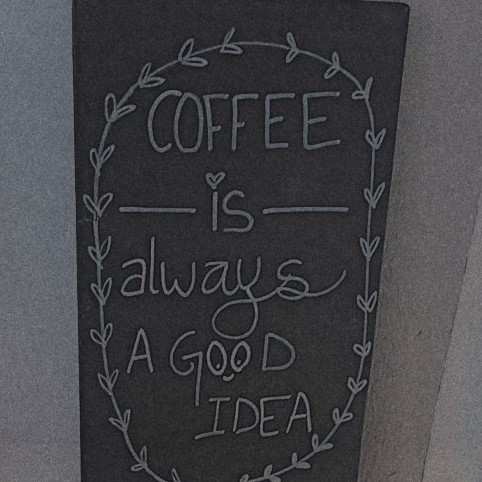 COFFEE
is
always
A GOOD
IDEA